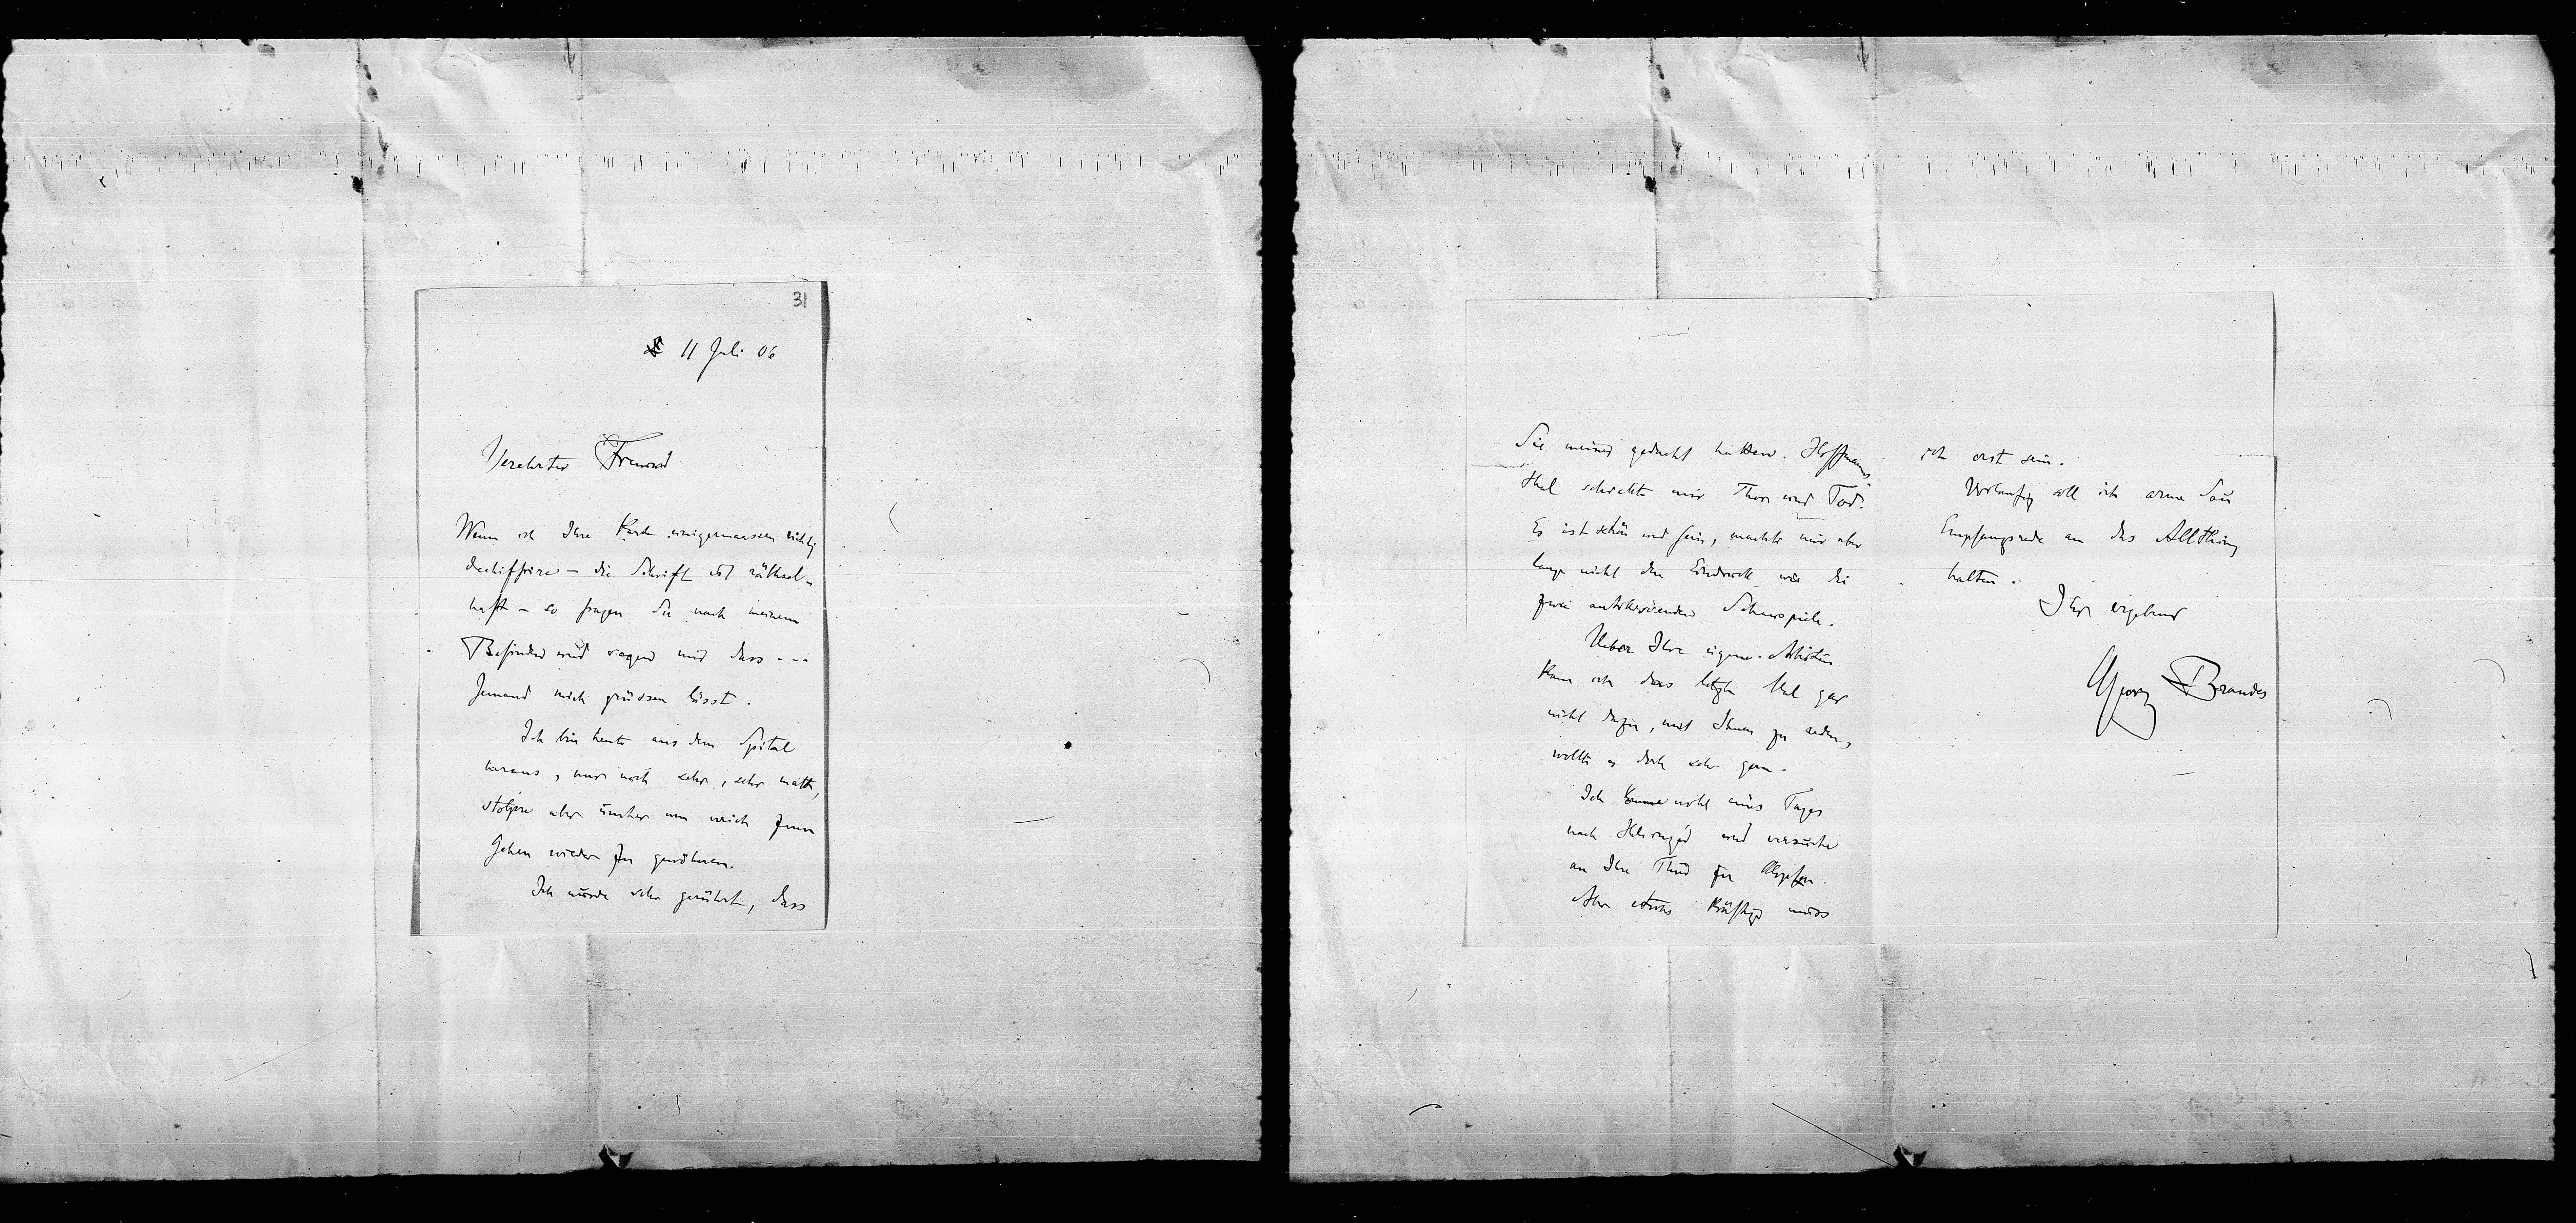 31
11 Juli 06
Verehrter Freund
Wenn ich Ihre Karte einigermaassen richtig
dechiffrire – die Schrift ist räthsel-
haft – so fragen Sie nach meinem
Befinden und sagen mir dass - - -
Jemand mich grüssen lässt.
Ich bin heute aus dem Spital
heraus, nur noch sehr, sehr matt,
stolpre aber umher um mich zum
Gehen wieder zu gewöhnen.
Ich wurde sehr gerührt, dass
Sie meiner gedacht hatten. Hoffmanns-
thal schickte mir Thor und Tod.
Es ist schön und fein, machte mir aber
lange nicht den Eindruck wie die
zwei antikisirenden Schauspiele.
Ueber Ihre eigene Arbeiten
kam ich das letzte Mal gar
nicht dazu, mit Ihnen zu reden,
wollte es doch sehr gern.
Ich komme wohl eines Tages
nach Helsingör und versuche
an Ihre Thür zu klopfen.
Aber etwas kräftiger muss
ich erst sein.
Vorläufig soll ich arme Sau
Empfangsrede an das Allthing
halten.
Ihr ergebener
Georg Brandes